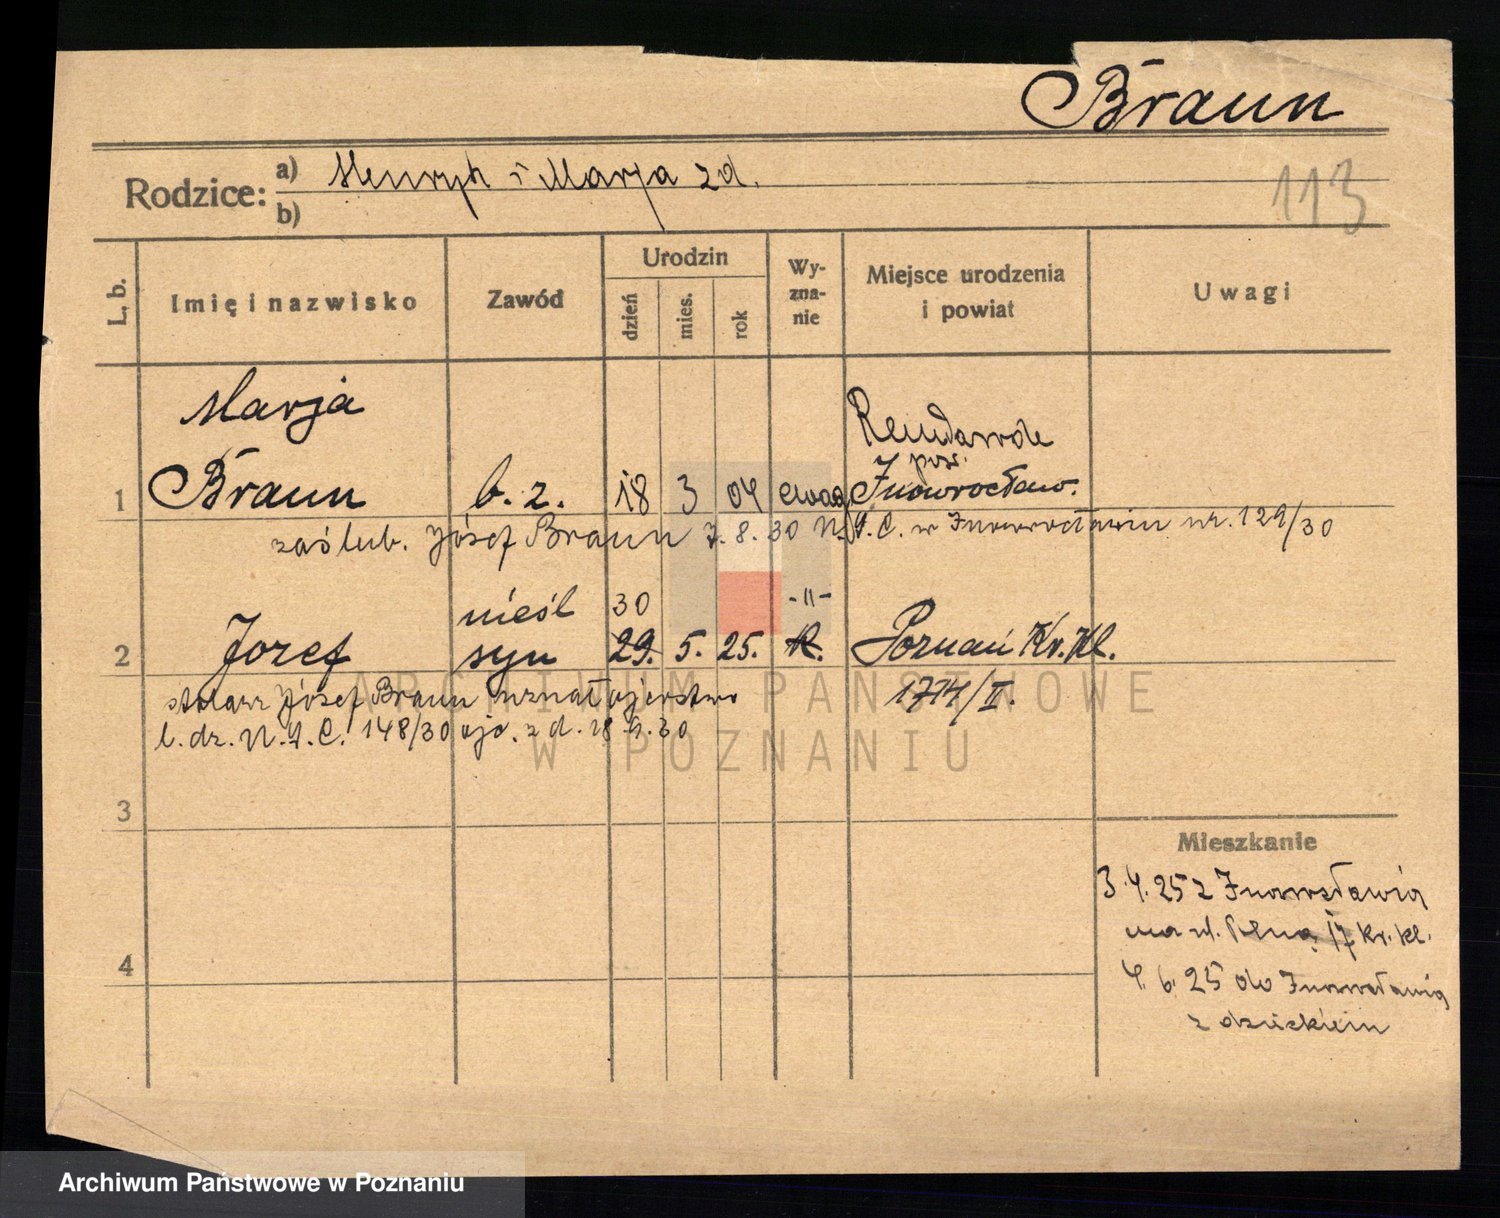 Braun
Rodzice: a) Henryk i Marja z d.
b)
113
L. b. Imię i nazwisko Zawód Urodzin dzień mies. rok Wy-zna-nie Miejsce urodzenia i powiat Uwagi
Marja
pow.
1 Braun b. z. 18 3 04 ewang Inowrocław.
zaślub. Józef Braun 7. 8. 30 U. S. C. w Inowrocławiu nr. 129/30
nieśl 30 -"-
2 Jozef syn 29. 5. 25. R. Poznań Kr. Kl.
1774/II.
stolarz Józef Braun uznał ojcostwo
l. dz. U. S. C. 148/30 z d. 18 9. 30
3
Mieszkanie
3. 4. 25 z Inowrocławia
na ul. 17 Kr. Kl.
4
4. 6. 25 do Inowrocławia
z dzieckiem
ARCHIWUM PAŃSTWOWE
W POZNANIU
Archiwum Państwowe w Poznaniu